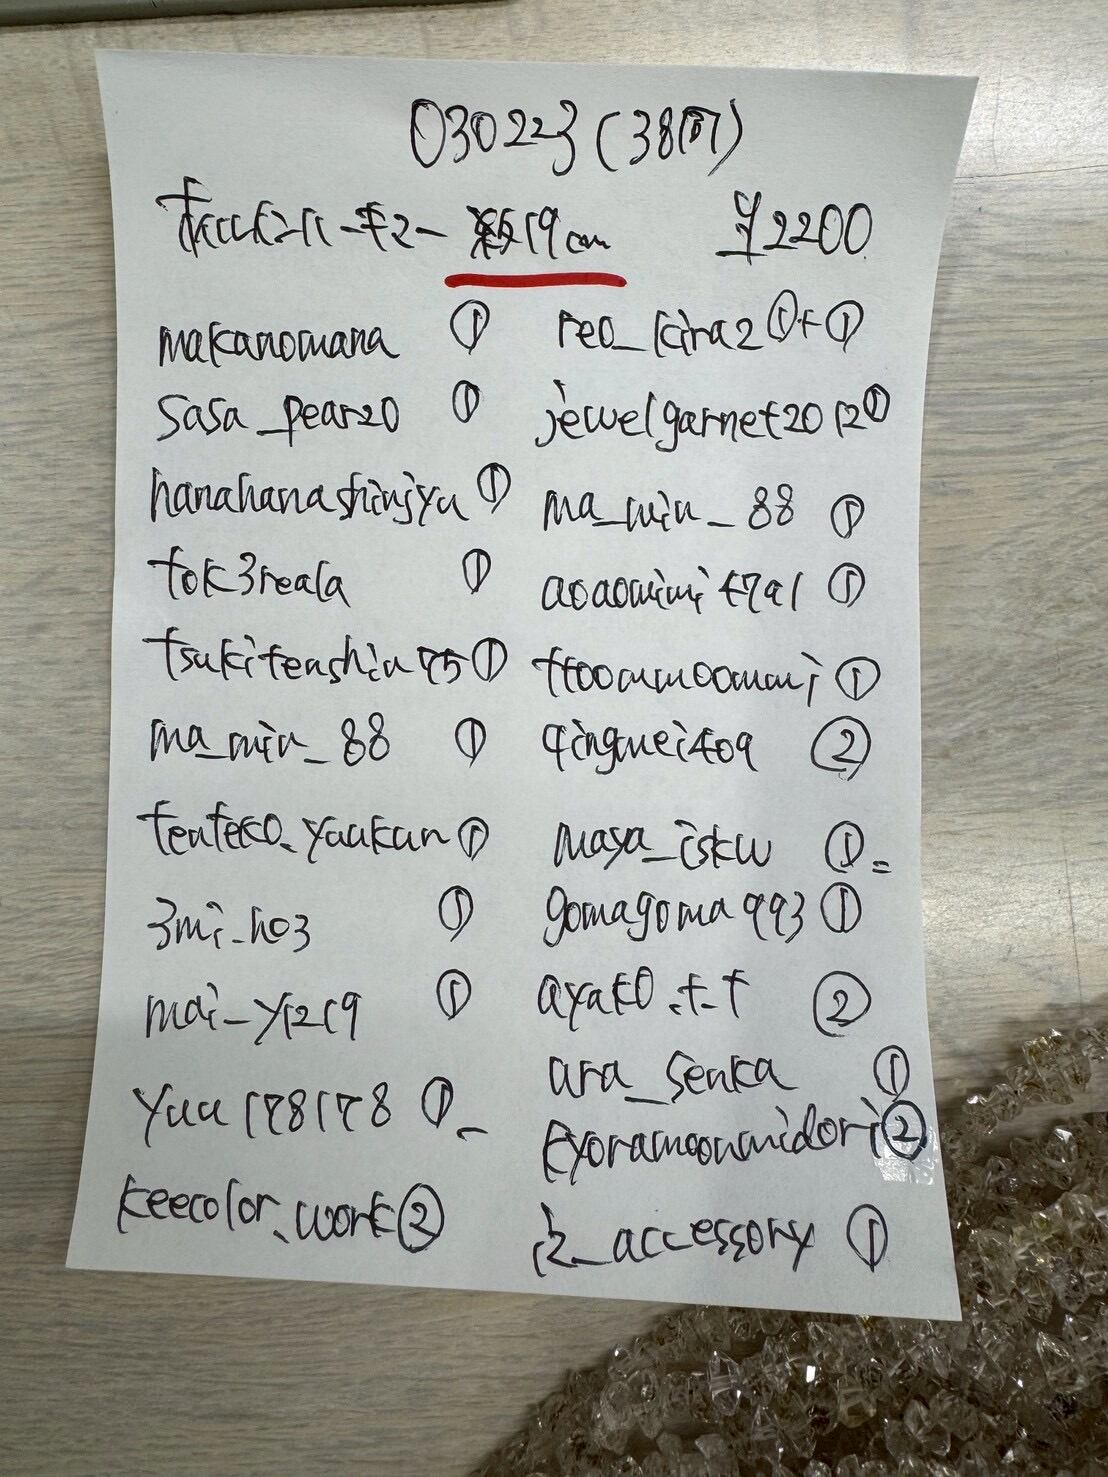 030223(38円)
約19cm ¥2200
makanomana ①
sasa_pear20 ①
hanahanashinjyu ①
tok3reala ①
tsukitenshin75 ①
ma_min_88 ①
tenteko_yuukun ①
3mi_ho3 ①
mai_y1219 ①
yuu178178 ①
keecolor_work ②
reo_kira2 ①+①
jewelgarnet2012 ①
ma_min_88 ①
aoaomimi4791 ①
ttoommoommi ①
qingmei409 ②
maya_iskw ①
gomagoma993 ①
ayako.t-t ②
ara_senka ①
kyoramoonmidori ②
iz_accessory ①